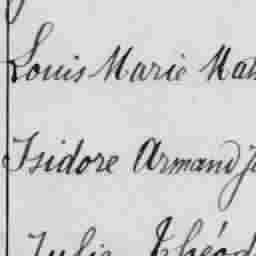 Louis Marie Mat
Isidore Armand J
Julie Théod